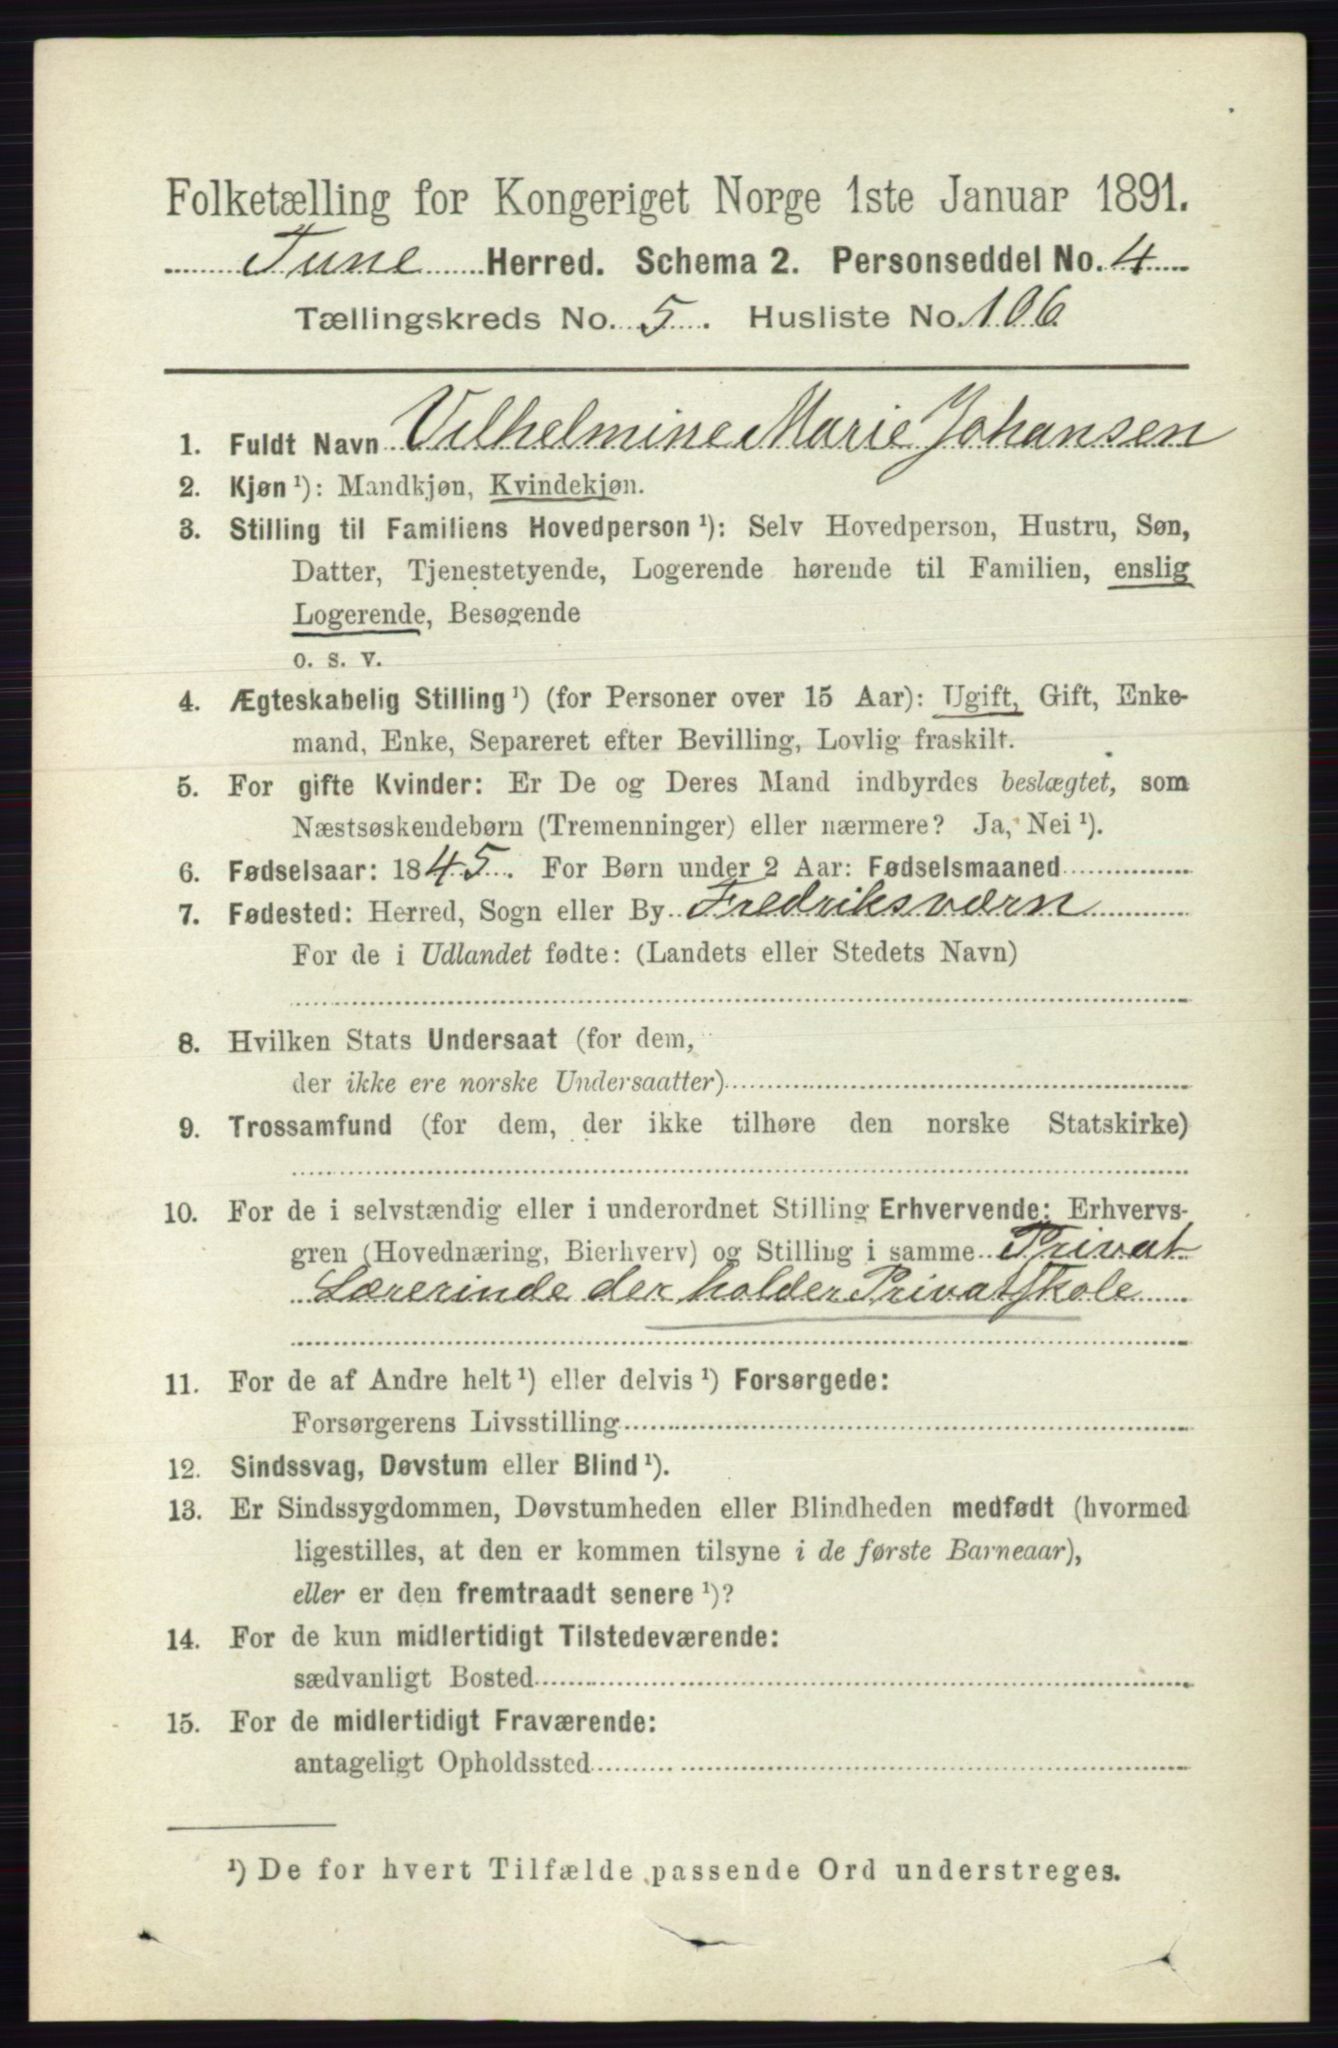 Folketælling for Kongeriget Norge 1ste Januar 1891.
Tune Herred. Schema 2. Personseddel No. 4
Tællingskreds No. 5. Husliste No. 106
1. Fuldt Navn Vilhelmine Marie Johansen
2. Kjøn ¹): Mandkjøn, Kvindekjøn.
3. Stilling til Familiens Hovedperson ¹): Selv Hovedperson, Hustru, Søn,
Datter, Tjenestetyende, Logerende hørende til Familien, enslig
Logerende, Besøgende
o. s. v.
4. Ægteskabelig Stilling ¹) (for Personer over 15 Aar): Ugift, Gift, Enke-
mand, Enke, Separeret efter Bevilling, Lovlig fraskilt.
5. For gifte Kvinder: Er De og Deres Mand indbyrdes beslægtet, som
Næstsøskendebørn (Tremenninger) eller nærmere? Ja, Nei ¹).
6. Fødselsaar: 1845. For Børn under 2 Aar: Fødselsmaaned
7. Fødested: Herred, Sogn eller By Fredriksværn
For de i Udlandet fødte: (Landets eller Stedets Navn)
8. Hvilken Stats Undersaat (for dem,
der ikke ere norske Undersaatter)
9. Trossamfund (for dem, der ikke tilhøre den norske Statskirke)
10. For de i selvstændig eller i underordnet Stilling Erhvervende: Erhvervs-
gren (Hovednæring, Bierhverv) og Stilling i samme Privat
Lærerinde der holder Privatskole
11. For de af Andre helt ¹) eller delvis ¹) Forsørgede:
Forsørgerens Livsstilling
12. Sindssvag, Døvstum eller Blind ¹).
13. Er Sindssygdommen, Døvstumheden eller Blindheden medfødt (hvormed
ligestilles, at den er kommen tilsyne i de første Barneaar),
eller er den fremtraadt senere ¹)?
14. For de kun midlertidigt Tilstedeværende:
sædvanligt Bosted
15. For de midlertidigt Fraværende:
antageligt Opholdssted
¹) De for hvert Tilfælde passende Ord understreges.